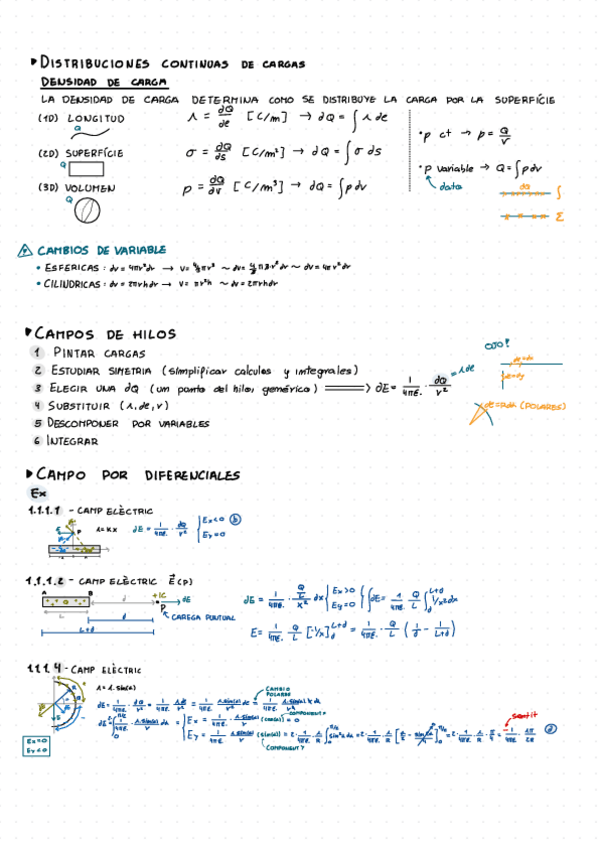 ▶ DISTRIBUCIONES CONTINUAS DE CARGAS
DENSIDAD DE CARGA
LA DENSIDAD DE CARGA DETERMINA COMO SE DISTRIBUYE LA CARGA POR LA SUPERFÍCIE
(1D) LONGITUD λ = dQ/de [C/m] → dQ = ∫ λ de
Q
(2D) SUPERFÍCIE σ = dQ/ds [C/m²] → dQ = ∫ σ ds
Q
(3D) VOLUMEN ρ = dQ/dv [C/m³] → dQ = ∫ρ dv
Q
• ρ ct → ρ = Q/V
• ρ variable → Q = ∫ρdv
data
dQ ∫
Σ
CAMBIOS DE VARIABLE
• ESFÉRICAS : dv = 4πr²dr → V = 4/3πr³ ~ dv = 4/3π3·r²dr ~ dv = 4πr²dr
• CILINDRICAS : dv = 2πrhdr → V = πr²h ~ dv = 2πrhdr
▶ CAMPOS DE HILOS
1 PINTAR CARGAS
2 ESTUDIAR SIMETRIA (simplificar calculos y integrales)
3 ELEGIR UNA dQ (un punto del hilo, genérico) ⟹ dE = 1/4πε₀ · dQ/r² = λde
4 SUBSTITUIR (λ, de, r)
5 DESCOMPONER POR VARIABLES
6 INTEGRAR
OJO!
de=dx
de=dy
de=Rdα (POLARES)
▶ CAMPO POR DIFERENCIALES
Ex
1.1.1.1 - CAMP ELÈCTRIC
λ = Kx dE = 1/4πε₀ · dQ/r² { Ex<0 Ey=0 (b)
P
1.1.1.2 - CAMP ELÈCTRIC E⃗(P)
A B d +1C dE
P
CAREGA PUNTUAL
L d
L+d
dE = 1/4πε₀ · Q/L / x² dx { Ex>0 Ey=0 } ∫dE = 1/4πε₀ Q/L ∫ d L+d 1/x² dx
E = 1/4πε₀ Q/L [-1/x] d L+d = 1/4πε₀ · Q/L (1/d - 1/L+d)
1.1.1.4 - CAMP ELÈCTRIC
λ = λ₀ sin(α)
CAMBIO POLARES
COMPONENTE X
COMPONENT Y
sentit
Ex=0
Ey<0